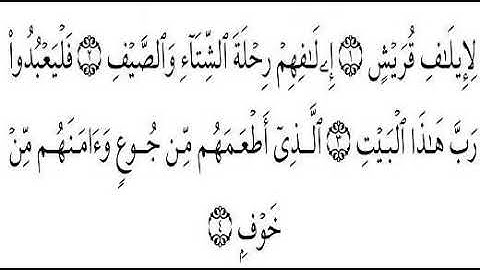 لِإِيلَٰفِ قُرَيْشٍ ۝١ إِۦلَٰفِهِمْ رِحْلَةَ ٱلشِّتَآءِ وَٱلصَّيْفِ ۝٢ فَلْيَعْبُدُوا۟
رَبَّ هَٰذَا ٱلْبَيْتِ ۝٣ ٱلَّذِىٓ أَطْعَمَهُم مِّن جُوعٍ وَءَامَنَهُم مِّنْ
خَوْفٍۭ ۝٤